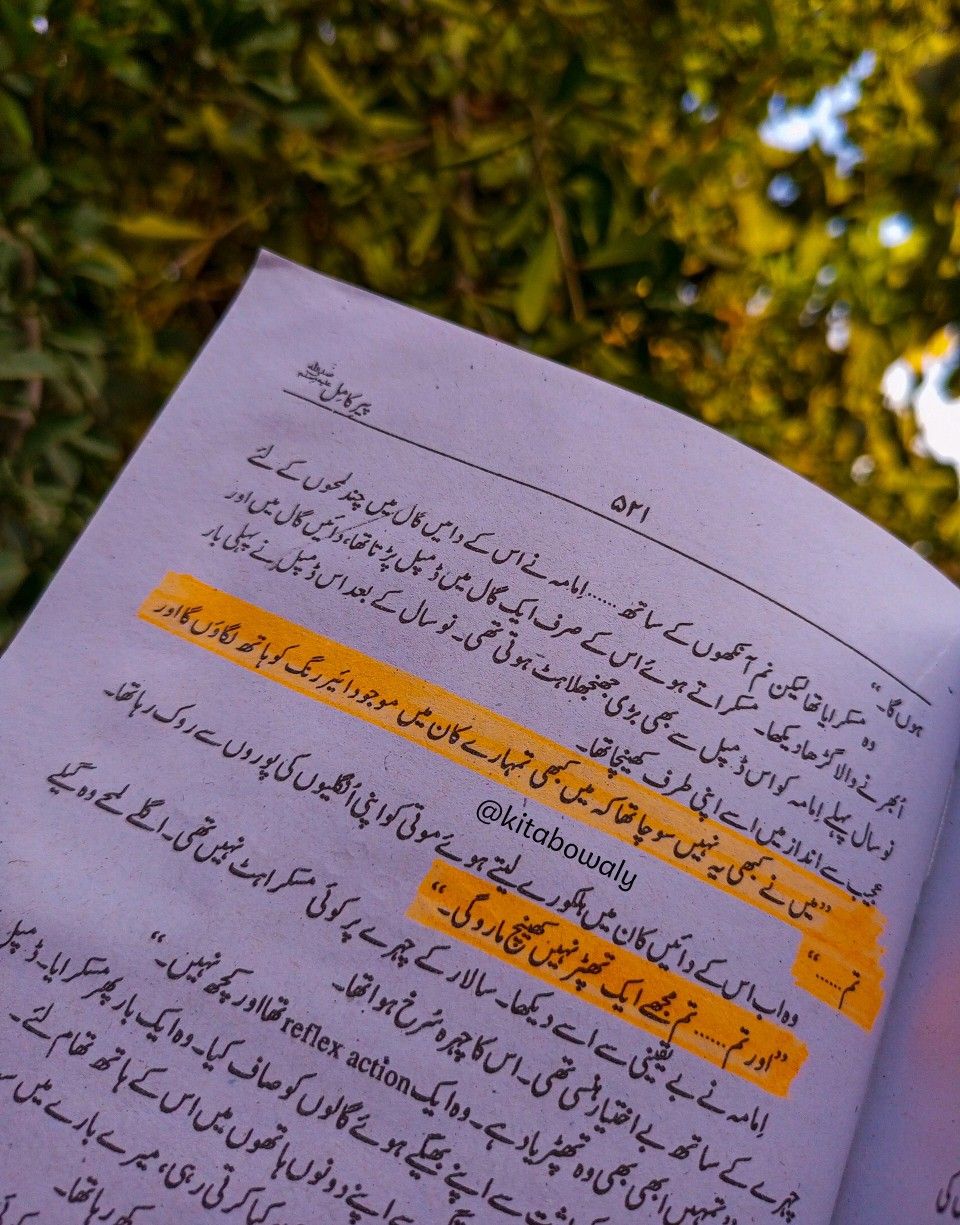 پیرکامل ﷺ
۵۲۱
ہوں گا۔“
وہ مسکرایا تھا لیکن نم آنکھوں کے ساتھ ...... اِمامہ نے اس کے دائیں گال میں چند لمحوں کے لئے
اُبھرنے والا گڑھا دیکھا۔ مسکراتے ہوئے اس کے صرف ایک گال میں ڈمپل پڑتا تھا، دائیں گال میں اور
نو سال پہلے اِمامہ کو اس ڈمپل سے بھی بڑی جھنجھلاہٹ ہوتی تھی۔ نو سال کے بعد اس ڈمپل نے پہلی بار
عجیب سے انداز میں اسے اپنی طرف کھینچا تھا۔
”میں نے کبھی یہ نہیں سوچا تھا کہ میں کبھی تمہارے کان میں موجود ائیر رنگ کو ہاتھ لگاؤں گا اور
تم......“
@kitabowaly
وہ اب اس کے دائیں کان میں ہلکورے لیتے ہوئے موتی کو اپنی اُنگلیوں کی پوروں سے روک رہا تھا۔
”اور تم...... تم مجھے ایک تھپڑ نہیں کھینچ مارو گی۔“
اِمامہ نے بے یقینی سے اسے دیکھا۔ سالار کے چہرے پر کوئی مسکراہٹ نہیں تھی۔ اگلے لمحے وہ گیلے
چہرے کے ساتھ بے اختیار ہنسی تھی۔ اس کا چہرہ سُرخ ہوا تھا۔
”تمہیں ابھی بھی وہ تھپڑ یاد ہے۔ وہ ایک reflex action تھا اور کچھ نہیں۔“
سے اپنے بھیگے ہوئے گالوں کو صاف کیا۔ وہ ایک بار پھر مسکرایا۔ ڈمپل
اپنے دونوں ہاتھوں میں اس کے ہاتھ تھام لئے۔
کیا کرتی رہی، میرے بارے میں
رہا تھا۔